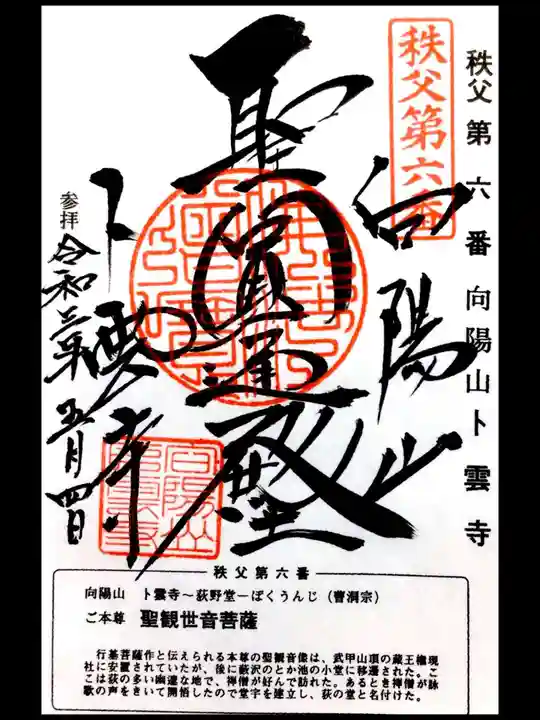 秩父第六番 向陽山卜雲寺
秩父第六番
向陽山
聖
殿
卜雲寺
参拝
令和三年五月四日
秩父第六番
向陽山 卜雲寺〜荻野堂ーぼくうんじ（曹洞宗）
ご本尊 聖観世音菩薩
行基菩薩作と伝えられる本尊の聖観音像は、武甲山頂の蔵王権現
社に安置されていたが、後に萩沢のとか池の小堂に移遷された。こ
こは萩の多い幽邃な地で、禅僧が好んで訪れた。あるとき禅僧が詠
歌の声をきいて開悟したので堂宇を建立し、荻の堂と名付けた。